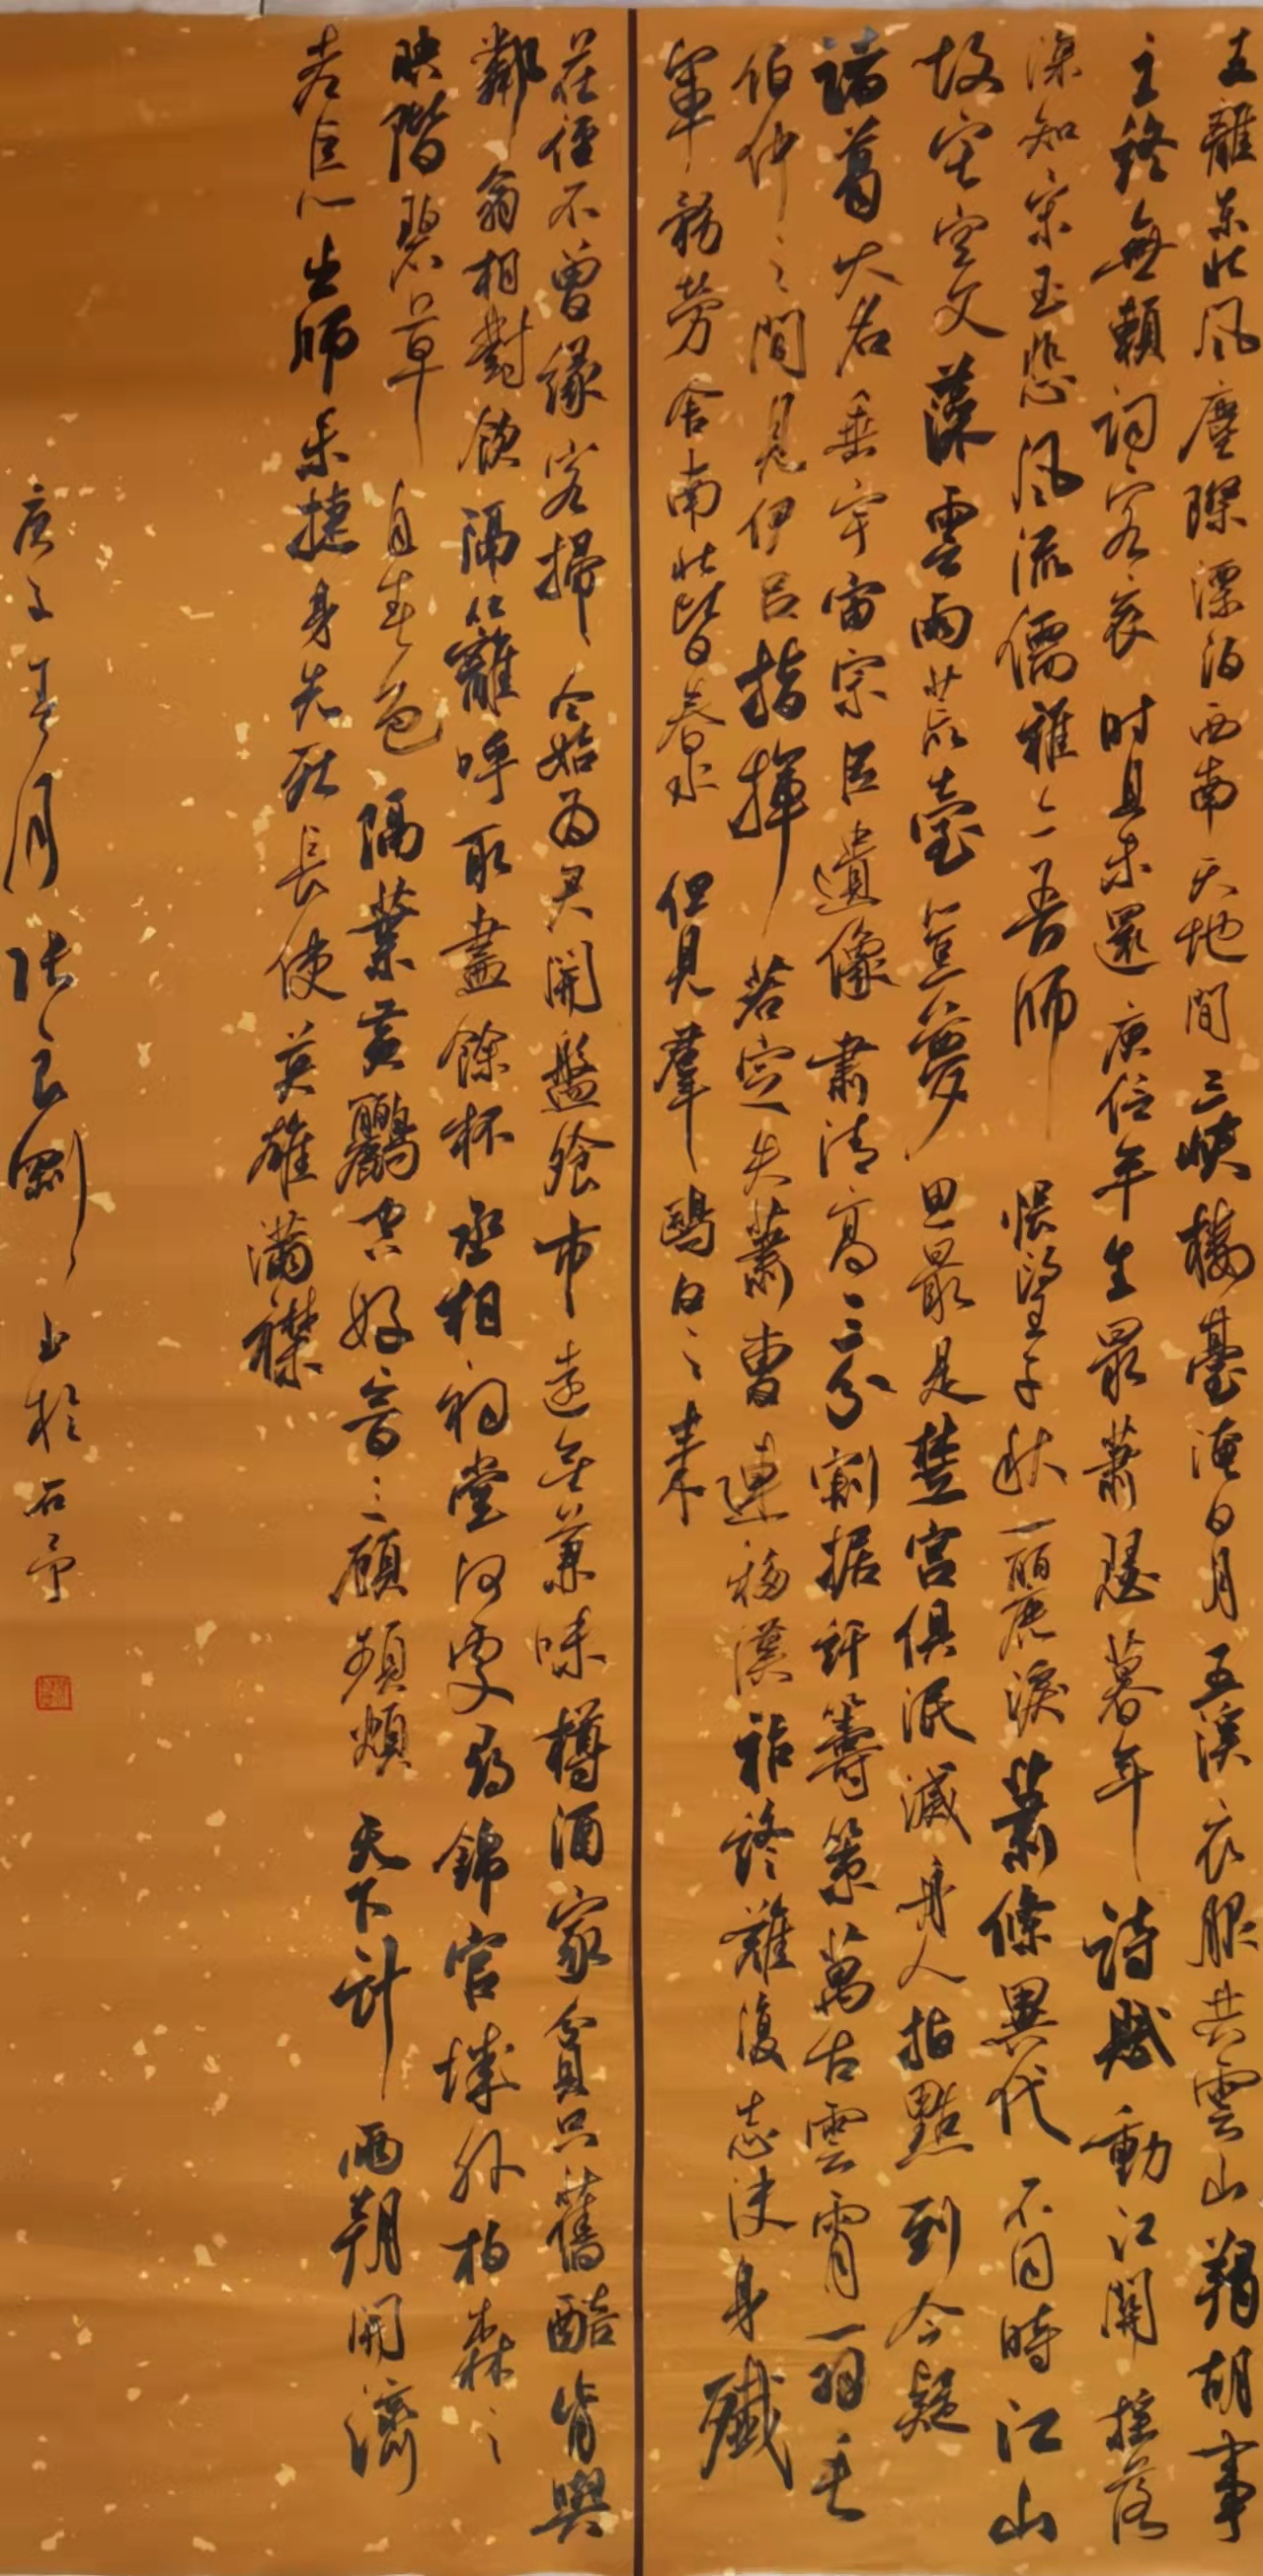 支離東北風塵際漂泊西南天地間三峽樓臺淹日月五溪衣服共雲山羯胡事
主終無賴詞客哀時且未還庾信年生最蕭瑟暮年詩賦動江關搖落
深知宋玉悲風流儒雅亦吾師悵望千秋一麗淚蕭條異代不同時江山
故宅空文藻雲雨荒臺豈夢思最是楚宮俱泯滅舟人指點到今疑
諸葛大名垂宇宙宗臣遺像肅清高三分割據紆籌策萬古雲霄一羽毛
伯仲之間見伊呂指揮若定失蕭曹運移漢祚終難復志決身殲
軍務勞舍南北皆春水但見羣鷗日々來
花徑不曾緣客掃今始為君開盤飧市遠無兼味樽酒家貧只舊醅肯與
鄰翁相對飲隔籬呼取盡餘杯丞相祠堂何處尋錦官城外柏森々
映階碧草自春色隔葉黃鸝空好音三顧頻煩天下計兩朝開濟
老臣心出師未捷身先死長使英雄滿襟
庚子月張良書於石